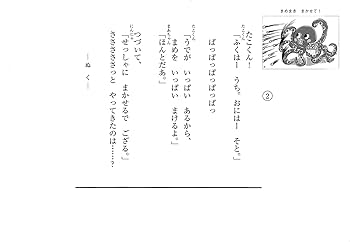 まめまき まかせて!
②
たこくん—
たこくん
「ふくはー うち。おにはー そと。」
ぱっぱっぱっぱっぱっ
たこくん
「うでが いっぱい あるから、
まめを いっぱい まけるよ。」
「ほんとだあ。」
つづいて、
「せっしゃに まかせるで ござる。」
さささささっと やってきたのは……?
―ぬ く―